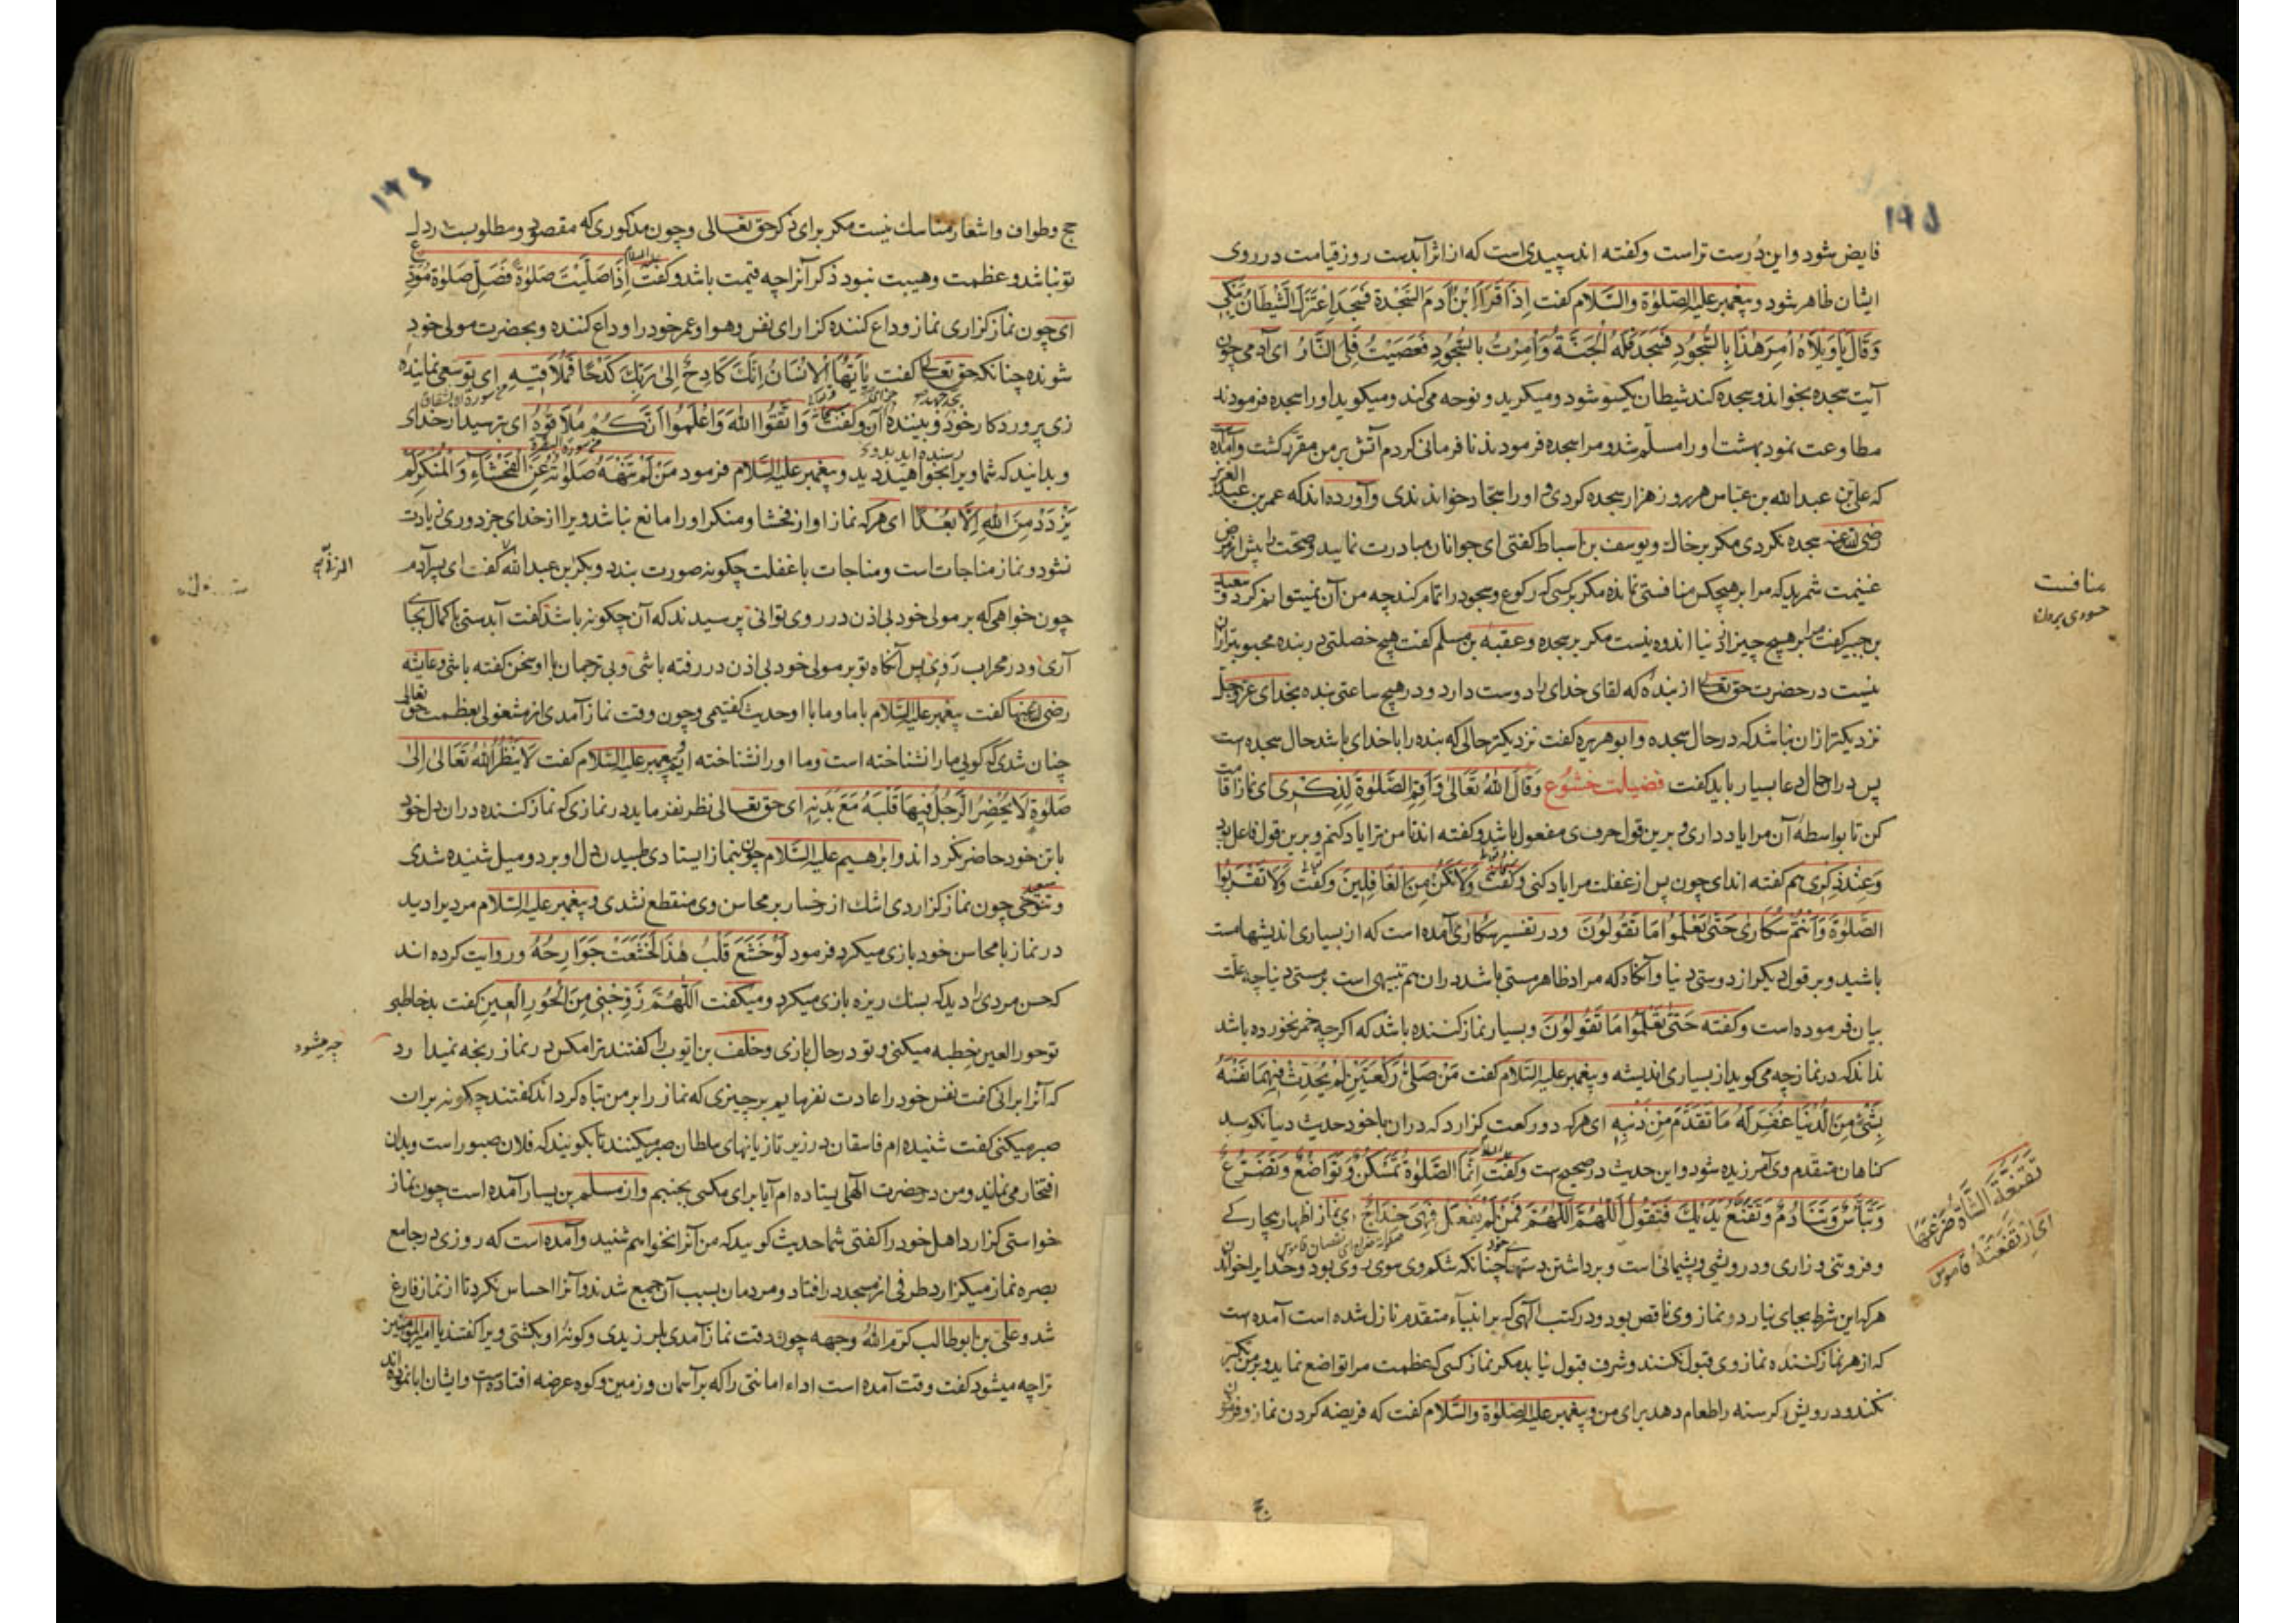 ۱۹۵
فایض شود و این درست تر است و کفته اند سپیدی است که از اثر آبدست روز قیامت در روی
ایشان ظاهر شود و پیغمبر علیه الصلوة والسلام کفت اِذَا قَرَأَ ابْنُ آدَمَ السَّجْدَةَ فَسَجَدَ اِعْتَزَلَ الشَّيْطَانُ يَبْكِي
وَقَالَ يَا وَيْلَاهُ اُمِرَ هٰذَا بِالسُّجُودِ فَسَجَدَ فَلَهُ الْجَنَّةُ وَاُمِرْتُ بِالسُّجُودِ فَعَصَيْتُ فَلِيَ النَّارُ ای آدمی چون
آیت سجده بخواند و سجده کند شیطان یکسو شود و میکرید و نوحه می کند و میکوید او را سجده فرمودند
مطاوعت نمود بهشت او را مسلم شد و مرا سجده فرمودند نافرمانی کردم آتش بر من مقرر کشت و آمده
که علی بن عبدالله بن عباس هر روز هزار سجده کردی و او را سجاد خواندندی و آورده اند که عمر بن عبد العزیز
رضی الله عنه سجده نکردی مکر بر خاک و یوسف بن اسباط کفتی ای جوانان مبادرت نمایید و صحت را پیش از مرض
غنیمت شمرید که مرا بر هیچکس منافستی نمانده مکر بر کسی که رکوع و سجود را اتمام کند چه من آن نمیتوانم کرد و سعید
بن جبیر کفت مرا بر هیچ چیز از دنیا اندوه نیست مکر بر سجده و عقبة بن مسلم کفت هیچ خصلتی در بنده محبوبتر از ان
نیست در حضرت حق تعالی از بنده که لقای خدای را دوست دارد و در هیچ ساعتی بنده بخدای عز و جل
نزدیکتر از ان نباشد که در حال سجده و ابو هریره کفت نزدیکتر حالی که بنده را با خدای باشد حال سجده است
پس در ان حال دعا بسیار باید کفت فضیلت خشوع وَقَالَ اللهُ تَعَالٰى وَاَقِمِ الصَّلٰوةَ لِذِكْرِي ای نماز را اقامت
کن تا بواسطه آن مرا یاد داری و برین قول حرف ی مفعول باشد و کفته اند تا من ترا یاد کنم و برین قول فاعل بود
وعند ذکری هم کفته اند ای چون پس از غفلت مرا یاد کنی و کفت وَلَا تَكُنْ مِنَ الْغَافِلِينَ و کفت وَلَا تَقْرَبُوا
الصَّلٰوةَ وَاَنْتُمْ سُكَارٰى حَتّٰى تَعْلَمُوا مَا تَقُولُونَ و در تفسیر سکاری آمده است که از بسیاری اندیشها مست
باشید و بر قول دیکر از دوستی دنیا و آنکاه که مراد ظاهر مستی باشد در ان هم تنبیهی است بر مستی دنیا چه علت
بیان فرموده است و کفته حَتّٰى تَعْلَمُوا مَا تَقُولُونَ و بسیار نماز کننده باشد که اکرچه خمر نخورده باشد
نداند که در نماز چه می کوید از بسیاری اندیشه و پیغمبر علیه السلام کفت مَنْ صَلّٰى رَكْعَتَيْنِ لَمْ يُحَدِّثْ فِيهِمَا نَفْسَهُ
بِشَيْءٍ مِنَ الدُّنْيَا غُفِرَ لَهُ مَا تَقَدَّمَ مِنْ ذَنْبِهِ ای هر که دو رکعت کزارد که در ان با خود حدیث دنیا نکوید
کناهان متقدم وی آمرزیده شود و این حدیث در صحیح ست و کفت اِنَّمَا الصَّلٰوةُ تَمَسْكُنٌ وَتَوَاضُعٌ وَتَضَرُّعٌ
وَتَبَاؤُسٌ وَتَنَادُمٌ وَتُقْنِعُ يَدَيْكَ فَتَقُولُ اَللّٰهُمَّ اَللّٰهُمَّ فَمَنْ لَمْ يَفْعَلْ فَهِيَ خِدَاجٌ ای نماز اظهار بیچارکی
و فروتنی و زاری و درویشی و پشیمانی است و برداشتن دستها چنانکه شکم وی سوی روی بود و خدایرا خواندن
هر که این شرط بجای نیارد و نماز وی ناقص بود و در کتب الهی که بر انبیاء متقدم نازل شده است آمده است
که از هر نماز کننده نماز وی قبول نکنند و شرف قبول نیابد مکر نماز کسی که عظمت مرا تواضع نماید و بر من تکبر
نکند و درویش کرسنه را طعام دهد برای من و پیغمبر علیه الصلوة والسلام کفت که فریضه کردن نماز و فرمودن
حج
منافست
حسودی بردن
ای
قاموس
۱۹۶
حج وطواف و اشعار مناسک نیست مکر برای ذکر حق تعالی و چون مذکوری که مقصود و مطلوبست در دل
تو نباشد و عظمت و هیبت نبود ذکر آنرا چه قیمت باشد و کفت اِذَا صَلَّيْتَ صَلٰوةً فَصَلِّ صَلٰوةَ مُوَدِّعٍ
ای چون نماز کزاری نماز وداع کننده کزار ای نفس و هوا و عمر خود را وداع کننده و بحضرت مولی خود
شونده چنانکه حق تعالی کفت يَا اَيُّهَا الْاِنْسَانُ اِنَّكَ كَادِحٌ اِلٰى رَبِّكَ كَدْحًا فَمُلَاقِيهِ ای تو سعی نماینده
زی پروردکار خود و بیننده آن و کفت وَاتَّقُوا اللهَ وَاعْلَمُوا اَنَّكُمْ مُلَاقُوهُ ای بترسید از خدای
و بدانید که شما ویرا بخواهید دید و پیغمبر علیه السلام فرمود مَنْ لَمْ تَنْهَهُ صَلٰوتُهُ عَنِ الْفَحْشَاءِ وَالْمُنْكَرِ لَمْ
يَزْدَدْ مِنَ اللهِ اِلَّا بُعْدًا ای هر که نماز او از فحشا و منکر او را مانع نباشد ویرا از خدای جز دوری زیادت
نشود و نماز مناجات است و مناجات با غفلت چکونه صورت بندد و بکر بن عبدالله کفت ای پسر آدم
چون خواهی که بر مولی خود بی اذن در روی توانی پرسیدند که آن چکونه باشد کفت آبدستی با کمال بجا
آری و در محراب روی پس آنکاه تو بر مولی خود بی اذن در رفته باشی و بی ترجمان با او سخن کفته باشی و عایشه
رضی الله عنها کفت پیغمبر علیه السلام با ما و ما با او حدیث کفتیمی و چون وقت نماز آمدی از مشغولی بعظمت حق تعالی
چنان شدی که کویی ما را نشناخته است و ما او را نشناخته ایم و پیغمبر علیه السلام کفت لَا يَنْظُرُ اللهُ تَعَالٰى اِلٰى
صَلٰوةٍ لَا يُحْضِرُ الرَّجُلُ فِيهَا قَلْبَهُ مَعَ بَدَنِهِ ای حق تعالی نظر نفرماید در نمازی که نماز کننده در ان دل خود
با تن خود حاضر نکرداند و ابراهیم علیه السلام چون بنماز ایستادی طپیدن دل او بر دو میل شنیده شدی
و سعید تنوخی چون نماز کزاردی اشک از رخسار بر محاسن وی منقطع نشدی و پیغمبر علیه السلام مردی را دید
در نماز با محاسن خود بازی میکرد فرمود لَوْ خَشَعَ قَلْبُ هٰذَا لَخَشَعَتْ جَوَارِحُهُ و روایت کرده اند
که حسن مردی را دید که بسنک ریزه بازی میکرد و میکفت اَللّٰهُمَّ زَوِّجْنِي مِنَ الْحُورِ الْعِينِ کفت بد خاطبی
تو حور العین خطبه میکنی و تو در حال بازی و خلف بن ایوب را کفتند ترا مکس در نماز رنجه نمیدارد
که آنرا برانی کفت نفس خود را عادت نفرمایم بر چیزی که نماز را بر من تباه کرداند کفتند چکونه بر ان
صبر میکنی کفت شنیده ام فاسقان در زیر تازیانهای سلطان صبر میکنند تا بکویند که فلان صبور است و بدان
افتخار می نمایند و من در حضرت الهی ایستاده ام آیا برای مکسی بجنبم و از مسلم بن یسار آمده است چون نماز
خواستی کزارد اهل خود را کفتی شما حدیث کویید که من آنرا نخواهم شنید و آمده است که روزی در جامع
بصره نماز میکزارد طرفی از مسجد در افتاد و مردمان بسبب آن جمع شدند و آنرا احساس نکرد تا از نماز فارغ
شد و علی بن ابو طالب کرم الله وجهه چون وقت نماز آمدی بلرزیدی و کونه او بکشتی ویرا کفتند یا امیرالمؤمنین
ترا چه میشود کفت وقت آمده است اداء امانتی را که بر آسمان و زمین و کوه عرضه افتاده است و ایشان ابا نموده اند
چه میشود